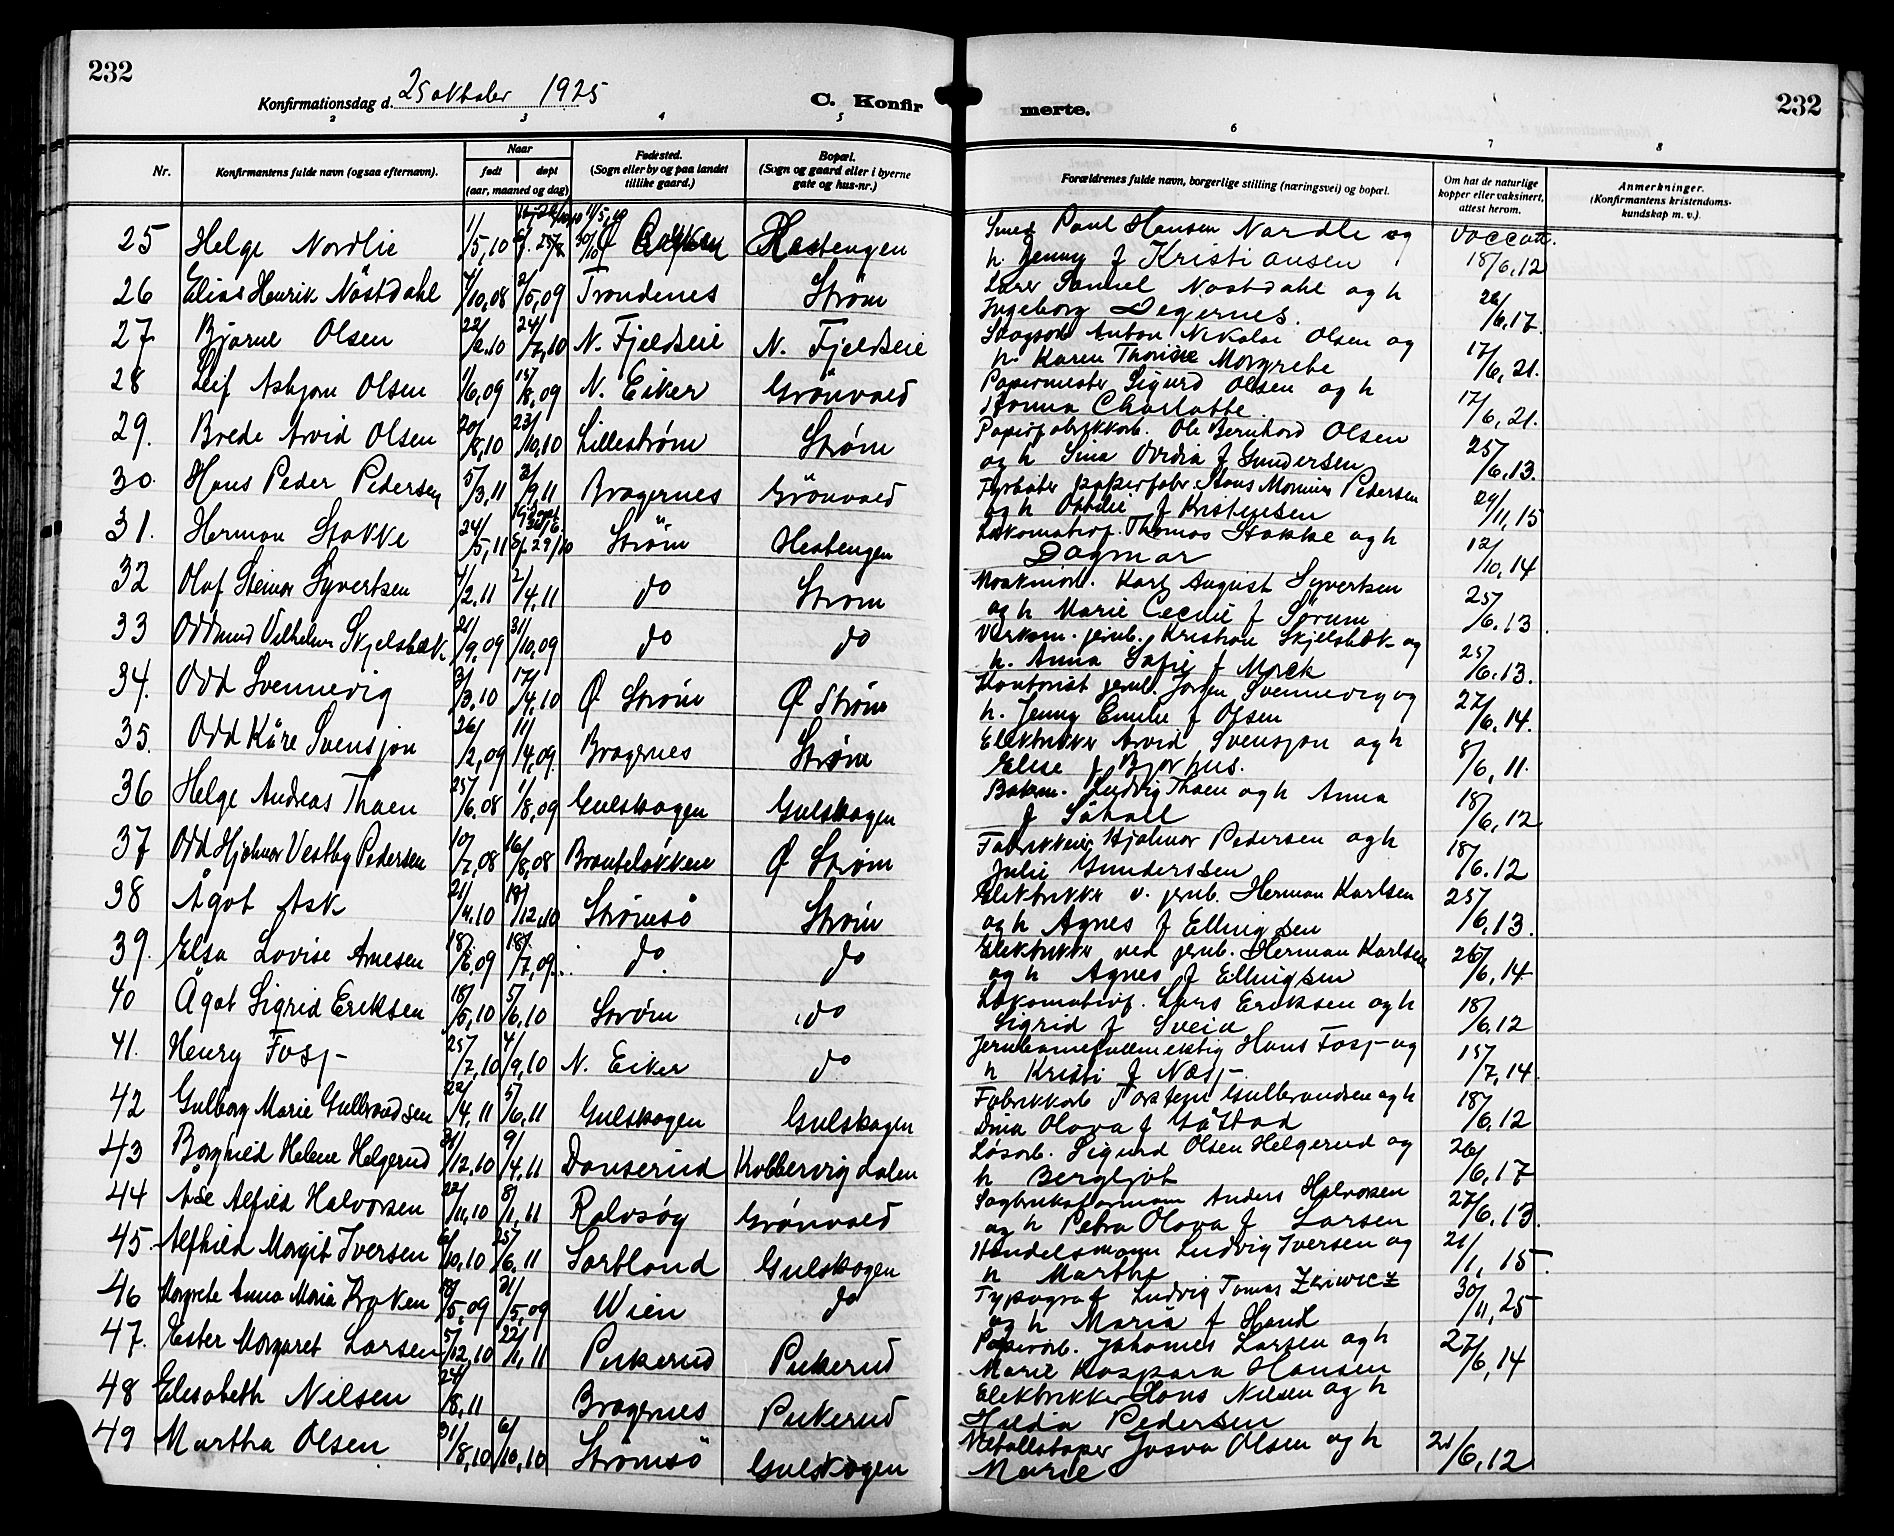 232
Konfirmationsdag d. 25 oktober 1925
C. Konfir
merte.
232
2 3 4 5 6 7 8
Nr.
Konfirmantens fulde navn (ogsaa efternavn).
Naar
født døpt
(aar, maaned og dag)
Fødested.
(Sogn eller by og paa landet
tillike gaard.)
Bopæl.
(Sogn og gaard eller i byerne
gate og hus-nr.)
Forældrenes fulde navn, borgerlige stilling (næringsvei) og bopæl.
Om hat de naturlige
kopper eller vaksinert,
attest herom.
Anmerkninger.
(Konfirmantens kristendoms-
kundskap m. v.).
25 Helge Nordlie 1/5,10 Hestengen Smed Paul Hansen Nordle og
h. Jenny f Kristiansen 18/6,12
26 Elias Henrik Nöstdahl 4/10,08 2/5,09 Trondenes Strøm Lærer Samuel Nöstdahl og h
Ingeborg Degernes. 26/6,17.
27. Bjarne Olsen 22/2.10 24/7,10 N. Fjeldseie N. Fjeldseie Skogsarb Anton Nikolai Olsen og
h. Karen Thorine Morgrethe 17/6,21.
28 Leif Asbjørn Olsen 1/6,09 15/8,09 N. Eiker Grönvold Papirmester Sigurd Olsen og h
Hanna Charlotte. 17/6,21.
29. Brede Arvid Olsen 20/8,10 23/10,10 Lillestrøm Strøm Papirfabrikkarb. Ole Bernhard Olsen
og h Sina f Gundersen 25/6,13.
30. Hans Peder Pedersen 5/3,11 3/9,11 Bragernes Grönvold Fyrbøter papirfabr. Hans Pedersen
og h f Kristensen 29/11,15
31. Herman Stokke 24/5,11 Ström Hestengen Lokomotivf. Thomas Stokke og h
Dagmar 12/10,14
32 Olaf Steinar Syvertsen 4/2.11 2/4.11 do Strøm Maskinarb. Karl August Syvertsen
og h Marie Cecilie f Sörum 25/6.13.
33 Oddmund Vilhelm Skjelsbæk 21/9,09 31/10,09 do do Verksm. jernb. Kristian Skjelsbæk og
h. Anna Sofie f Moek 25/6.13.
34. Odd Svennevig 3/3.10 17/4,10 Ø Strøm Ø Strøm Kontorist jernb. Svennevig og
h. Jenny Emilie f Olsen 27/6.14.
35. Odd Kåre Svensjon 26/2,09 11/4,09. Bragernes Strøm Elektriker Arvid Svensjon og h
Elise f Bjørhus. 8/6,11.
36 Helge Andreas Thoen 25/6.08 1/8,09 Gulskogen Gulskogen Ludvig Thoen og h Anna
f Såhall 18/6,12
37 Odd Hjalmar Vestby Pedersen 10/7,08 16/8,08 Branteløkken Ø Strøm Hjalmar Pedersen og h
Julie Gunderssen 18/6.12
38 Ågot Ask 21/9.10 18/12.10 Strømsö Strøm Elektrikk v. jernb. Herman Karlsen
og h Agnes f Ellingsen 25/6,13.
39. Elsa Lovise Arnesen 18/6.09 18/7,09. do do Elektrikk ved jernb. Herman Karlsen
og h Agnes f Ellingsen 26/6,14
40 Ågot Sigrid Eriksen 18/5,10 5/6.10 Strøm do Lokomotivf. Lars Eriksen og h
Sigrid f Sveia 18/6.12
41. Henry Foss 25/7,10 4/9,10 N. Eiker do Jernbanefullmektig Hans Foss og
h Kristi f Næss 15/7,14.
42 Gulborg Marie Gullbrandsen 22/4,11 5/6,11 Gulskogen Gulskogen Fabrikkarb Torstein Gulbrandsen og h
Dina Olava f Gåstad 18/6,12
43 Borghild Helene Helgerud 31/12,10 9/4,11 Danserud Kobbervig dalen Løsarb. Sigurd Olsen Helgerud og
h Bergljot 26/6,17
44 Åse Alfild Halvorsen 22/11,10 8/1,11 Rolvsöy Grönvold Sagbruksformann Anders Halvorsen
og h Petra Olava f Larsen 27/6,13.
45. Alfhild Morgit Iversen 6/10,10 25/6.11 Sortland Gulskogen Handelsmann Ludvig Iversen og
h Marthe 21/1,15.
46 Margrete Anna Maria 19/5,09 31/5,09 Wien do Typograf Ludvig Tomas Zkiwicz
og h Maria f Hand 30/11,25
47. Ester Morgaret Larsen 5/12,10 22/1,11 Pukerud Pukerud Papirarb. Johannes Larsen og h
Marie Kaspara Hansen 27/6,14
48 Elisabeth Nilsen 24/8,11 Bragernes Pukerud Elektrikker Hans Nilsen og h
Hilda Pedersen
49 Martha Olsen 31/8,10 6/10,10 Strømsö Gulskogen Metallstøper Josva Olsen og h
Marie 21/6,12